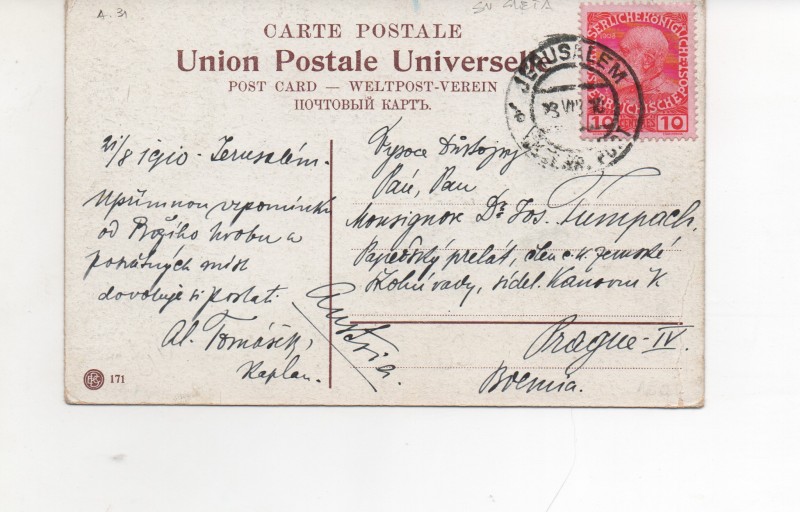 A. 31
SV. ZEMĚ
CARTE POSTALE
Union Postale Universelle
POST CARD — WELTPOST-VEREIN
ПОЧТОВЫЙ КАРТЪ.
SERLICHEKÖNIGLICHEÖST
1908
ERREICHISCHE
10 10
JERUSALEM
ÖSTERR. POST
21/8 1910 - Jerusalém -
Upřímnou vzpomínku
od Božího hrobu a
posvátných míst
dovoluje si poslat
Al. Tomášek,
kaplan.
Austria.
Vysoce Důstojný
Pan, Pan
Monsignor Dr. Jos. Tumpach.
Papežský prelát, člen c. k. zemské
školní rady, sídel. Kanovník
Prague - IV.
Boemia.
171